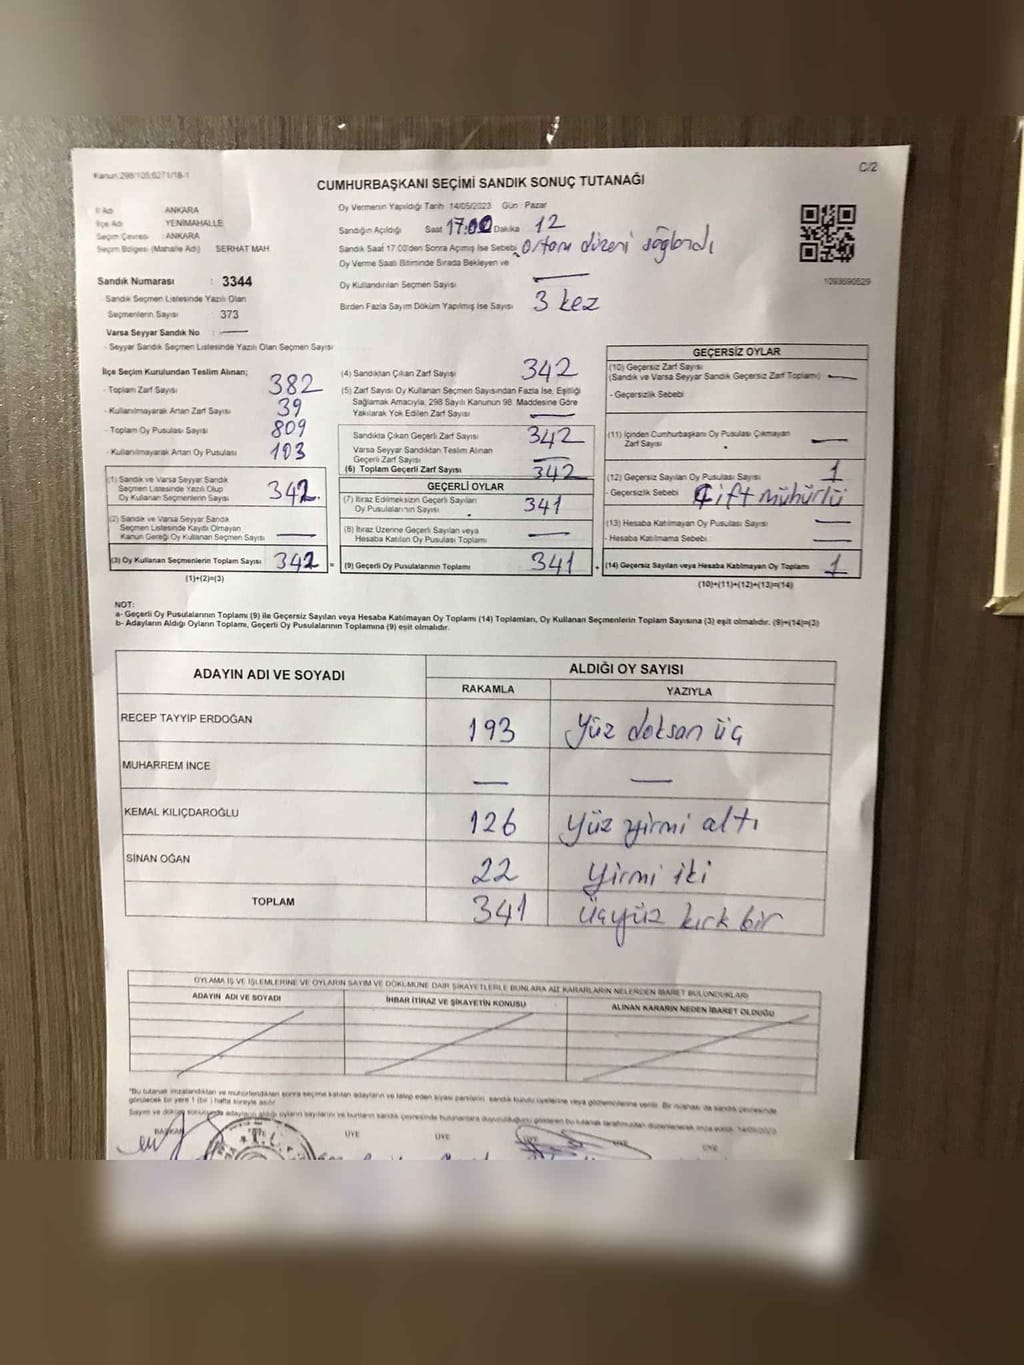 Kanun:298/105;6271/18-1
C/2
CUMHURBAŞKANI SEÇİMİ SANDIK SONUÇ TUTANAĞI
İl Adı ANKARA
İlçe Adı YENİMAHALLE
Seçim Çevresi : ANKARA
Seçim Bölgesi (Mahalle Adı) SERHAT MAH
Sandık Numarası : 3344
Sandık Seçmen Listesinde Yazılı Olan
Seçmenlerin Sayısı : 373
Varsa Seyyar Sandık No : —
- Seyyar Sandık Seçmen Listesinde Yazılı Olan Seçmen Sayısı
Oy Vermenin Yapıldığı Tarih 14/05/2023 Gün : Pazar
Sandığın Açıldığı Saat 17:00 Dakika 12
Sandık Saat 17:00'den Sonra Açımış İse Sebebi Ortam düzeni sağlandı
Oy Verme Saati Bitiminde Sırada Bekleyen ve
Oy Kullandırılan Seçmen Sayısı —
Birden Fazla Sayım Döküm Yapılmış İse Sayısı 3 kez
1093690529
İlçe Seçim Kurulundan Teslim Alınan;
- Toplam Zarf Sayısı 382
- Kullanılmayarak Artan Zarf Sayısı 39
- Toplam Oy Pusulası Sayısı 809
- Kullanılmayarak Artan Oy Pusulası 103
(1) Sandık ve Varsa Seyyar Sandık
Seçmen Listesinde Yazılı Olup
Oy Kullanan Seçmenlerin Sayısı 342
(2) Sandık ve Varsa Seyyar Sandık
Seçmen Listesinde Kayıtlı Olmayan
Kanun Gereği Oy Kullanan Seçmen Sayısı —
(3) Oy Kullanan Seçmenlerin Toplam Sayısı 342 =
(1)+(2)=(3)
(4) Sandıktan Çıkan Zarf Sayısı 342
(5) Zarf Sayısı Oy Kullanan Seçmen Sayısından Fazla İse, Eşitliği
Sağlamak Amacıyla, 298 Sayılı Kanunun 98. Maddesine Göre
Yakılarak Yok Edilen Zarf Sayısı —
Sandıkta Çıkan Geçerli Zarf Sayısı 342
Varsa Seyyar Sandıktan Teslim Alınan
Geçerli Zarf Sayısı —
(6) Toplam Geçerli Zarf Sayısı 342
GEÇERLİ OYLAR
(7) İtiraz Edilmeksizin Geçerli Sayılan
Oy Pusulalarının Sayısı 341
(8) İtiraz Üzerine Geçerli Sayılan veya
Hesaba Katılan Oy Pusulası Toplamı —
(9) Geçerli Oy Pusulalarının Toplamı 341 +
GEÇERSİZ OYLAR
(10) Geçersiz Zarf Sayısı
(Sandık ve Varsa Seyyar Sandık Geçersiz Zarf Toplamı) —
- Geçersizlik Sebebi
(11) İçinden Cumhurbaşkanı Oy Pusulası Çıkmayan
Zarf Sayısı —
(12) Geçersiz Sayılan Oy Pusulası Sayısı 1
- Geçersizlik Sebebi Çift mühürlü
(13) Hesaba Katılmayan Oy Pusulası Sayısı —
- Hesaba Katılmama Sebebi —
(14) Geçersiz Sayılan veya Hesaba Katılmayan Oy Toplamı 1
(10)+(11)+(12)+(13)=(14)
NOT:
a- Geçerli Oy Pusulalarının Toplamı (9) ile Geçersiz Sayılan veya Hesaba Katılmayan Oy Toplamı (14) Toplamları, Oy Kullanan Seçmenlerin Toplam Sayısına (3) eşit olmalıdır. (9)+(14)=(3)
b- Adayların Aldığı Oyların Toplamı, Geçerli Oy Pusulalarının Toplamına (9) eşit olmalıdır.
ADAYIN ADI VE SOYADI ALDIĞI OY SAYISI
RAKAMLA YAZIYLA
RECEP TAYYİP ERDOĞAN 193 yüz doksan üç
MUHARREM İNCE — —
KEMAL KILIÇDAROĞLU 126 yüz yirmi altı
SİNAN OĞAN 22 yirmi iki
TOPLAM 341 üçyüz kırk bir
OYLAMA İŞ VE İŞLEMLERİNE VE OYLARIN SAYIM VE DÖKÜMÜNE DAİR ŞİKAYETLERLE BUNLARA AİT KARARLARIN NELERDEN İBARET BULUNDUKLARI
ADAYIN ADI VE SOYADI İHBAR İTİRAZ VE ŞİKAYETİN KONUSU ALINAN KARARIN NEDEN İBARET OLDUĞU
*Bu tutanak imzalandıktan ve mühürlendikten sonra seçime katılan adayların ve talep eden siyasi partilerin sandık kurulu üyelerine veya gözlemcilerine verilir. Bir nüshası da sandık çevresinde
görülecek bir yere 1 (bir) hafta süreyle asılır
Sayım ve döküm sonucunda adayların aldığı oyların sayılarını ve bunların sandık çevresinde bulunanlara duyurulduğunu gösteren bu tutanak tarafımızdan düzenlenerek imza edildi. 14/05/2023
BAŞKAN ÜYE ÜYE ÜYE ÜYE ÜYE